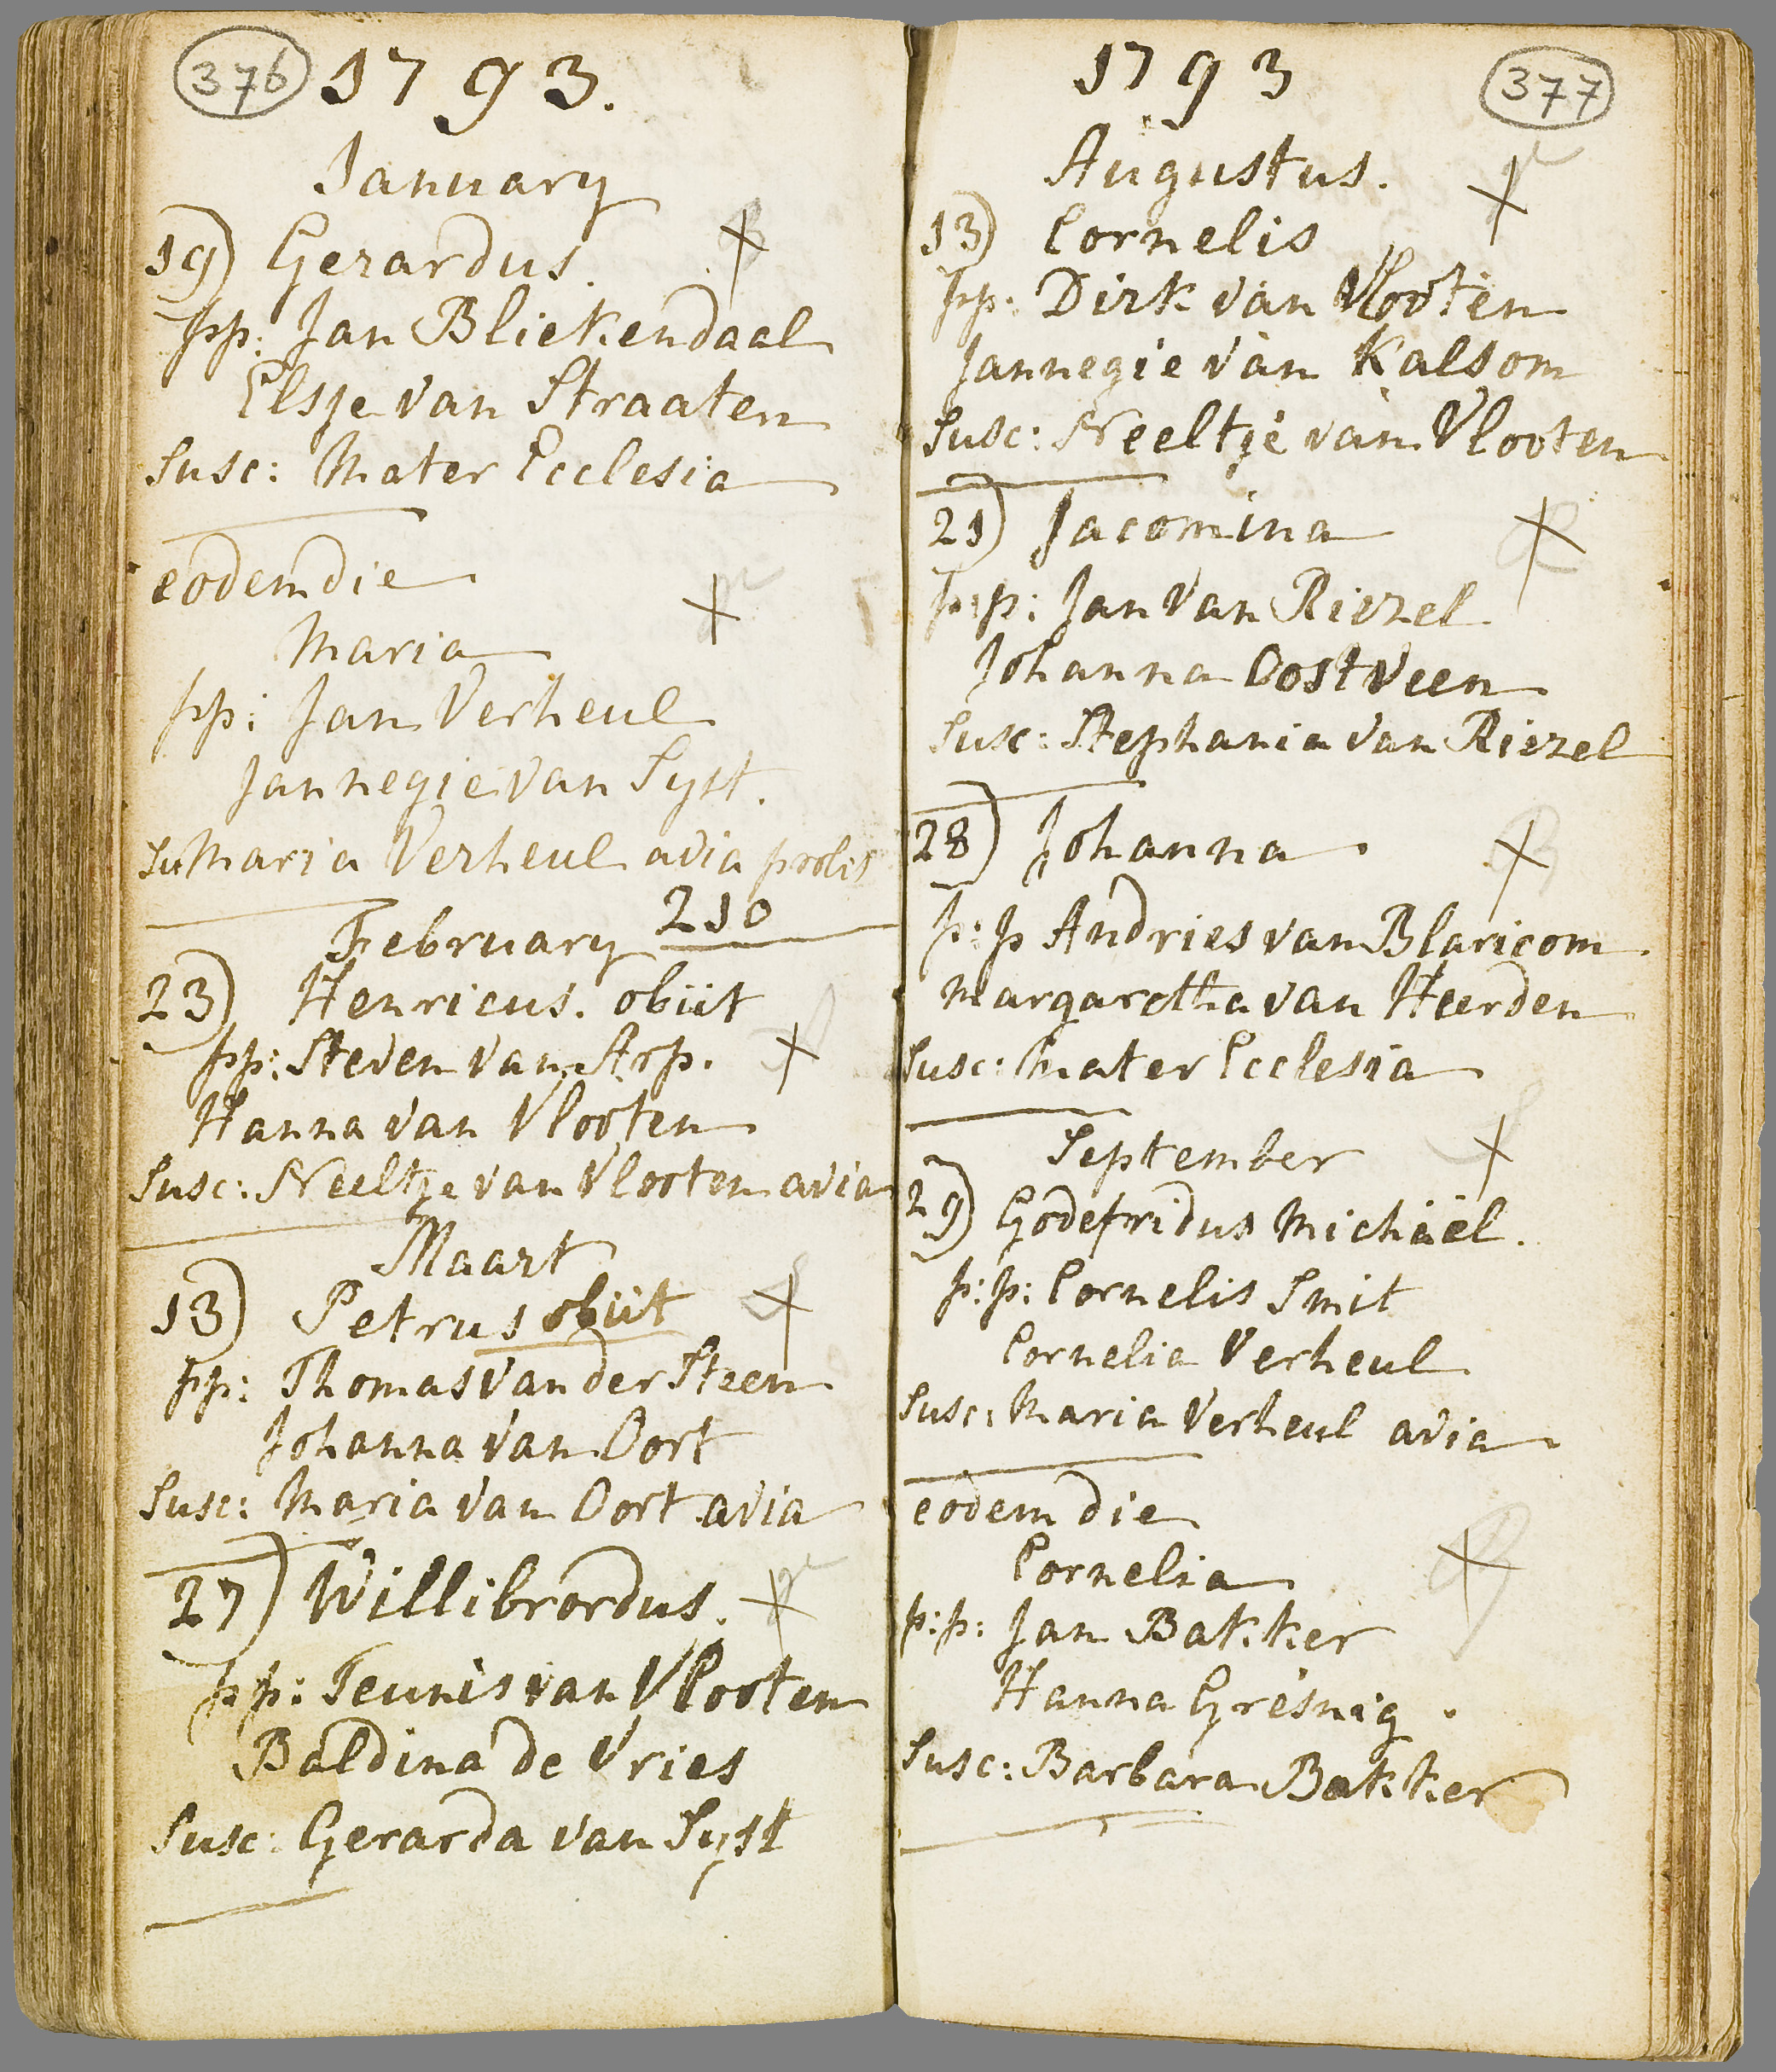 376
1793.
January
19) Gerardus.
pp: Jan Bliekendaal
Elsje van Straaten
Susc: Mater Ecclesia
eodem die
Maria
pp: Jan Verheul
Jannegie van Syst.
Su Maria Verheul avia prolis
210
February
23) Henricus. obiit
pp: Steven van Arp.
Hanna van Vlooten
Susc: Neeltje van Vlooten avia
Maart
13) Petrus obiit
pp: Thomas van der Steen
Johanna van Oort
Susc: Maria van Oort avia
27) Willibrordus.
pp: Teunis van Vlooten
Baldina de Vries
Susc: Gerarda van Syst
1793
377
Augustus.
13) Cornelis
pp: Dirk van Vlooten
Jannegie van Kalsom
Susc: Neeltje van Vlooten
21) Jacomina
p:p: Jan van Riezel
Johanna Oostveen
Susc: Stephania van Riezel
28) Johanna
p:p Andries van Blaricom
Margaretha van Heerden
Susc: Mater Ecclesia
September
29) Godefridus Michaël.
p:p: Cornelis Smit
Cornelia Verheul
Susc: Maria Verheul avia
eodem die
Cornelia
p:p: Jan Bakker
Hanna Gresnig.
Susc: Barbara Bakker